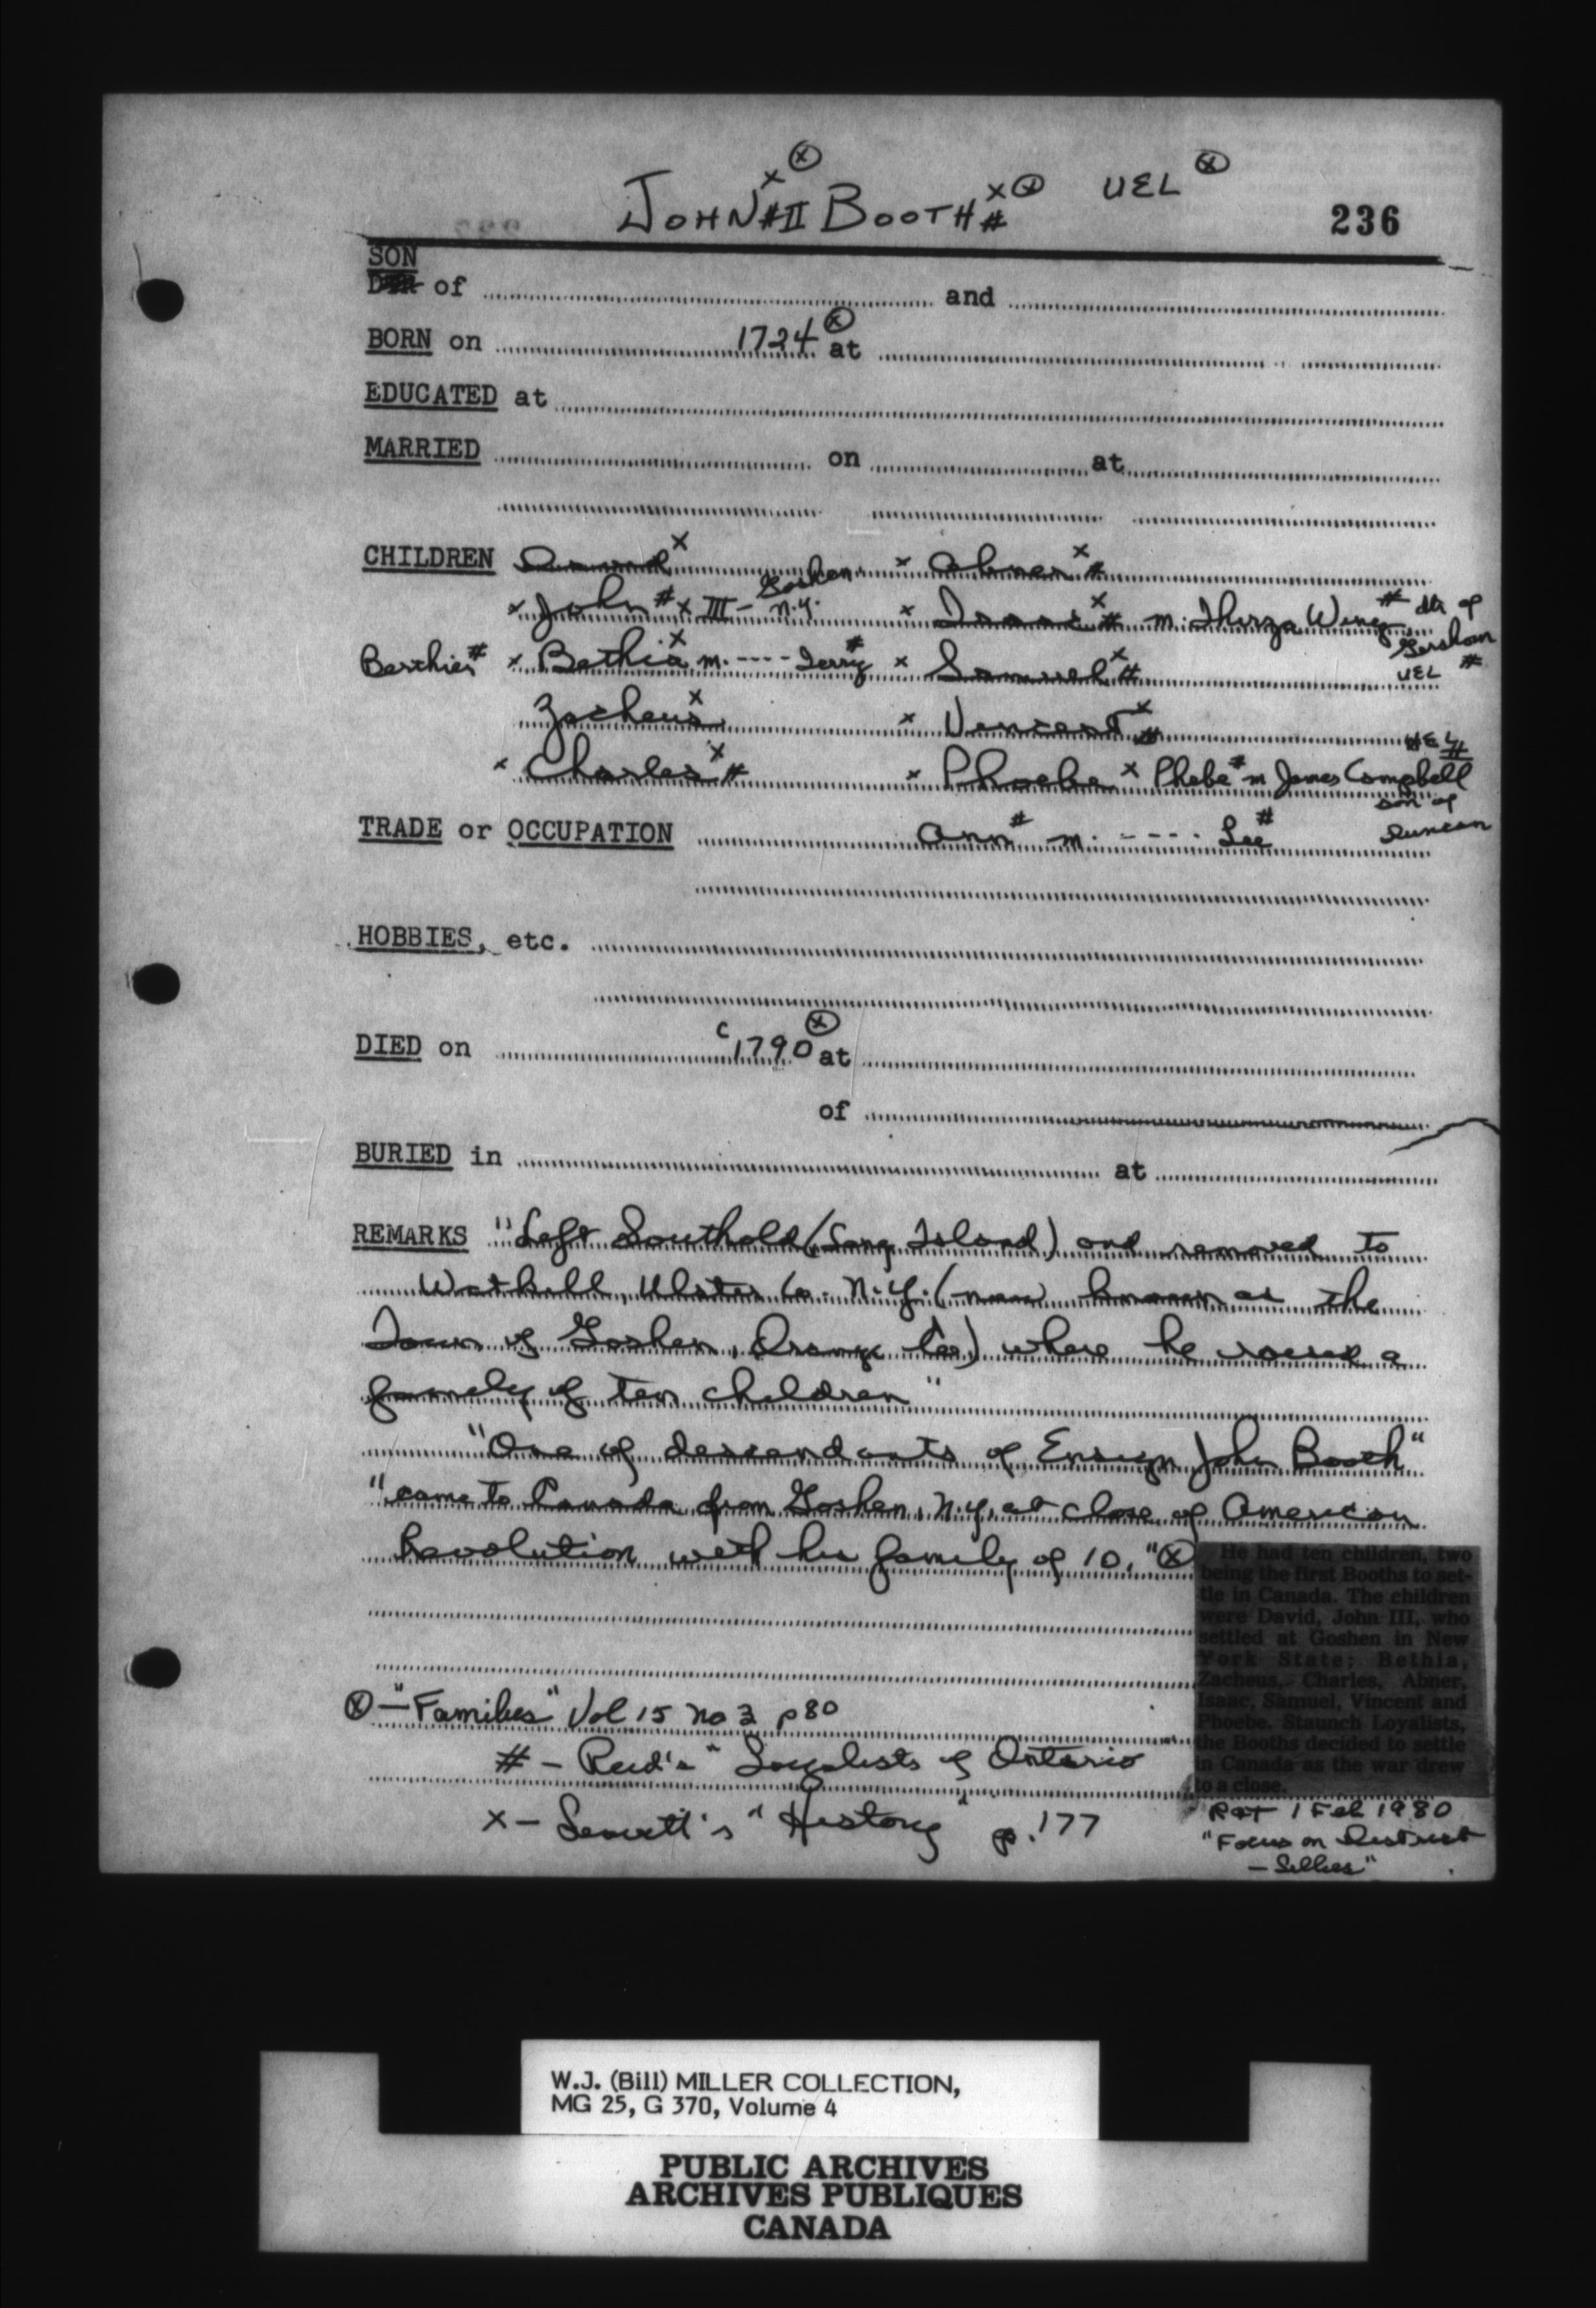 JOHN x # II ⓧ BOOTH x # ⓧ UEL ⓧ
236
SON
of ... and ...
BORN on ... 1724 ⓧ at ...
EDUCATED at ...
MARRIED ... on ... at ...
CHILDREN David x x Abner x #
x John # x III - Goshen N.Y. x Isaac x # m. Thirza Wing # dtr of Gershom UEL #
Berthier # x Bethia x m. ---- Terry # x Samuel x #
Zacheus x x Vincent x #
x Charles x # x Phoebe x Phebe # m James Campbell UEL # son of Duncan
TRADE or OCCUPATION Ann # m. ---- Lee #
HOBBIES, etc. ...
DIED on ... c 1790 ⓧ at ...
of ...
BURIED in ... at ...
REMARKS "Left Southold (Long Island) and removed to
Ulster Co. N.Y. (now known as the
Town of Goshen, Orange Co) where he raised a
family of ten children"
"One of descendants of Ensign John Booth"
"came to Canada from Goshen, N.Y. at close of American
Revolution with his family of 10." ⓧ
He had ten children, two
being the first Booths to set-
tle in Canada. The children
were David, John III, who
settled at Goshen in New
York State; Bethia,
Zacheus, Charles, Abner,
Isaac, Samuel, Vincent and
Phoebe. Staunch Loyalists,
the Booths decided to settle
in Canada as the war drew
to a close.
ⓧ - "Families" Vol 15 no 3 p 80
# - Reid's "Loyalists of Ontario
x - Leavitt's "History" p. 177
R&T 1 Feb 1980
"Focus on District
W.J. (Bill) MILLER COLLECTION,
MG 25, G 370, Volume 4
PUBLIC ARCHIVES
ARCHIVES PUBLIQUES
CANADA